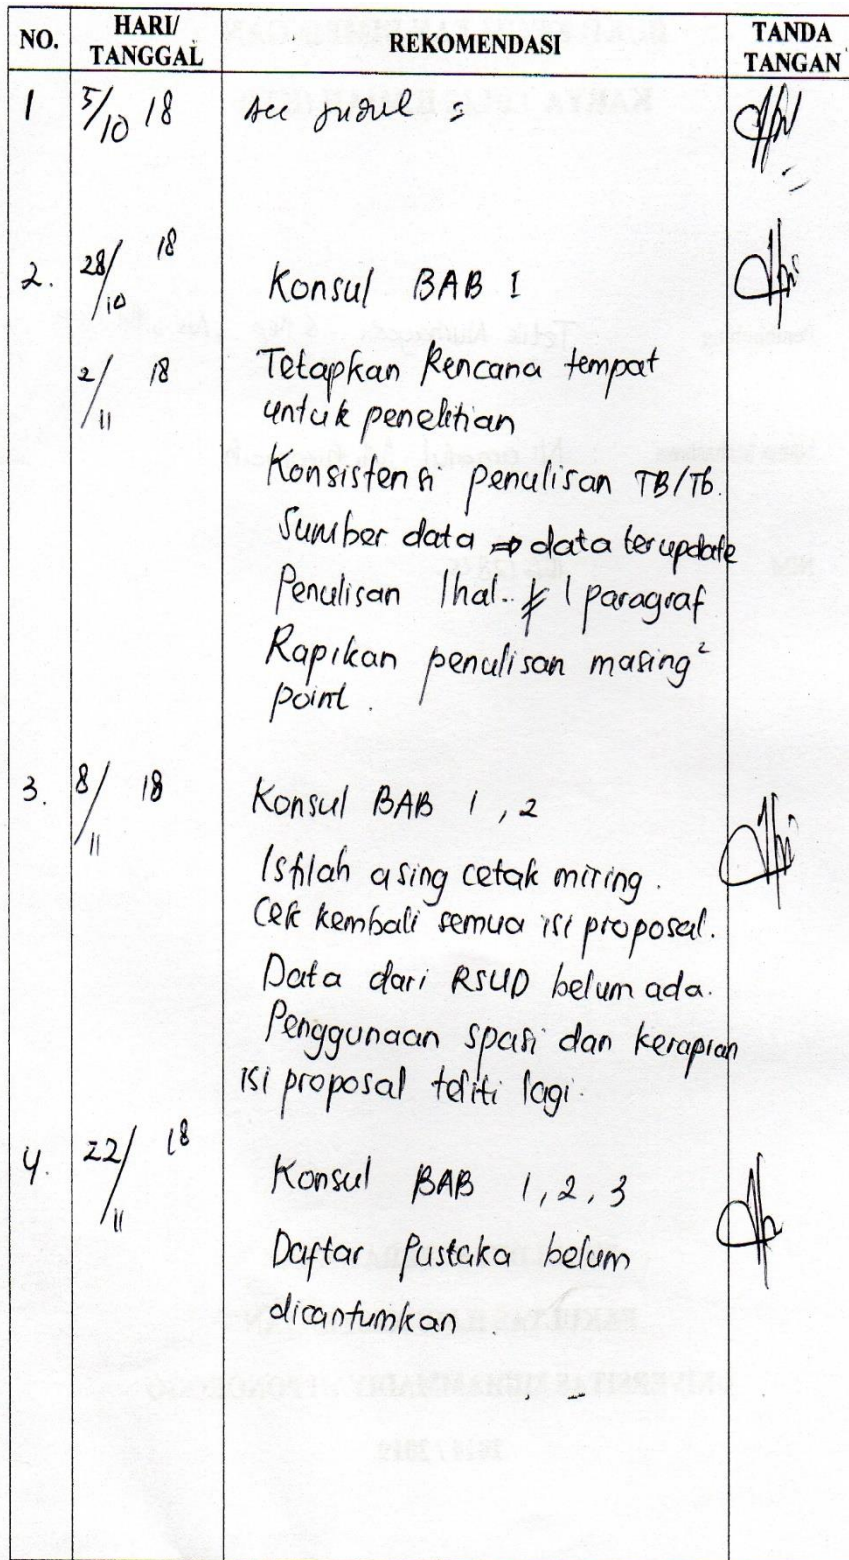 NO. HARI/ TANGGAL REKOMENDASI TANDA TANGAN
1 5/10 18 Acc judul
2. 28/10 18 Konsul BAB I
2/11 18 Tetapkan Rencana tempat
untuk penelitian
Konsistensi penulisan TB/Tb.
Sumber data ⇒ data terupdate
Penulisan 1 hal. ≠ 1 paragraf
Rapikan penulisan masing²
point.
3. 8/11 18 Konsul BAB 1, 2
Istilah asing cetak miring.
Cek kembali semua isi proposal.
Data dari RSUD belum ada.
Penggunaan spasi dan kerapian
isi proposal teliti lagi.
4. 22/11 18 Konsul BAB 1, 2, 3
Daftar Pustaka belum
dicantumkan.